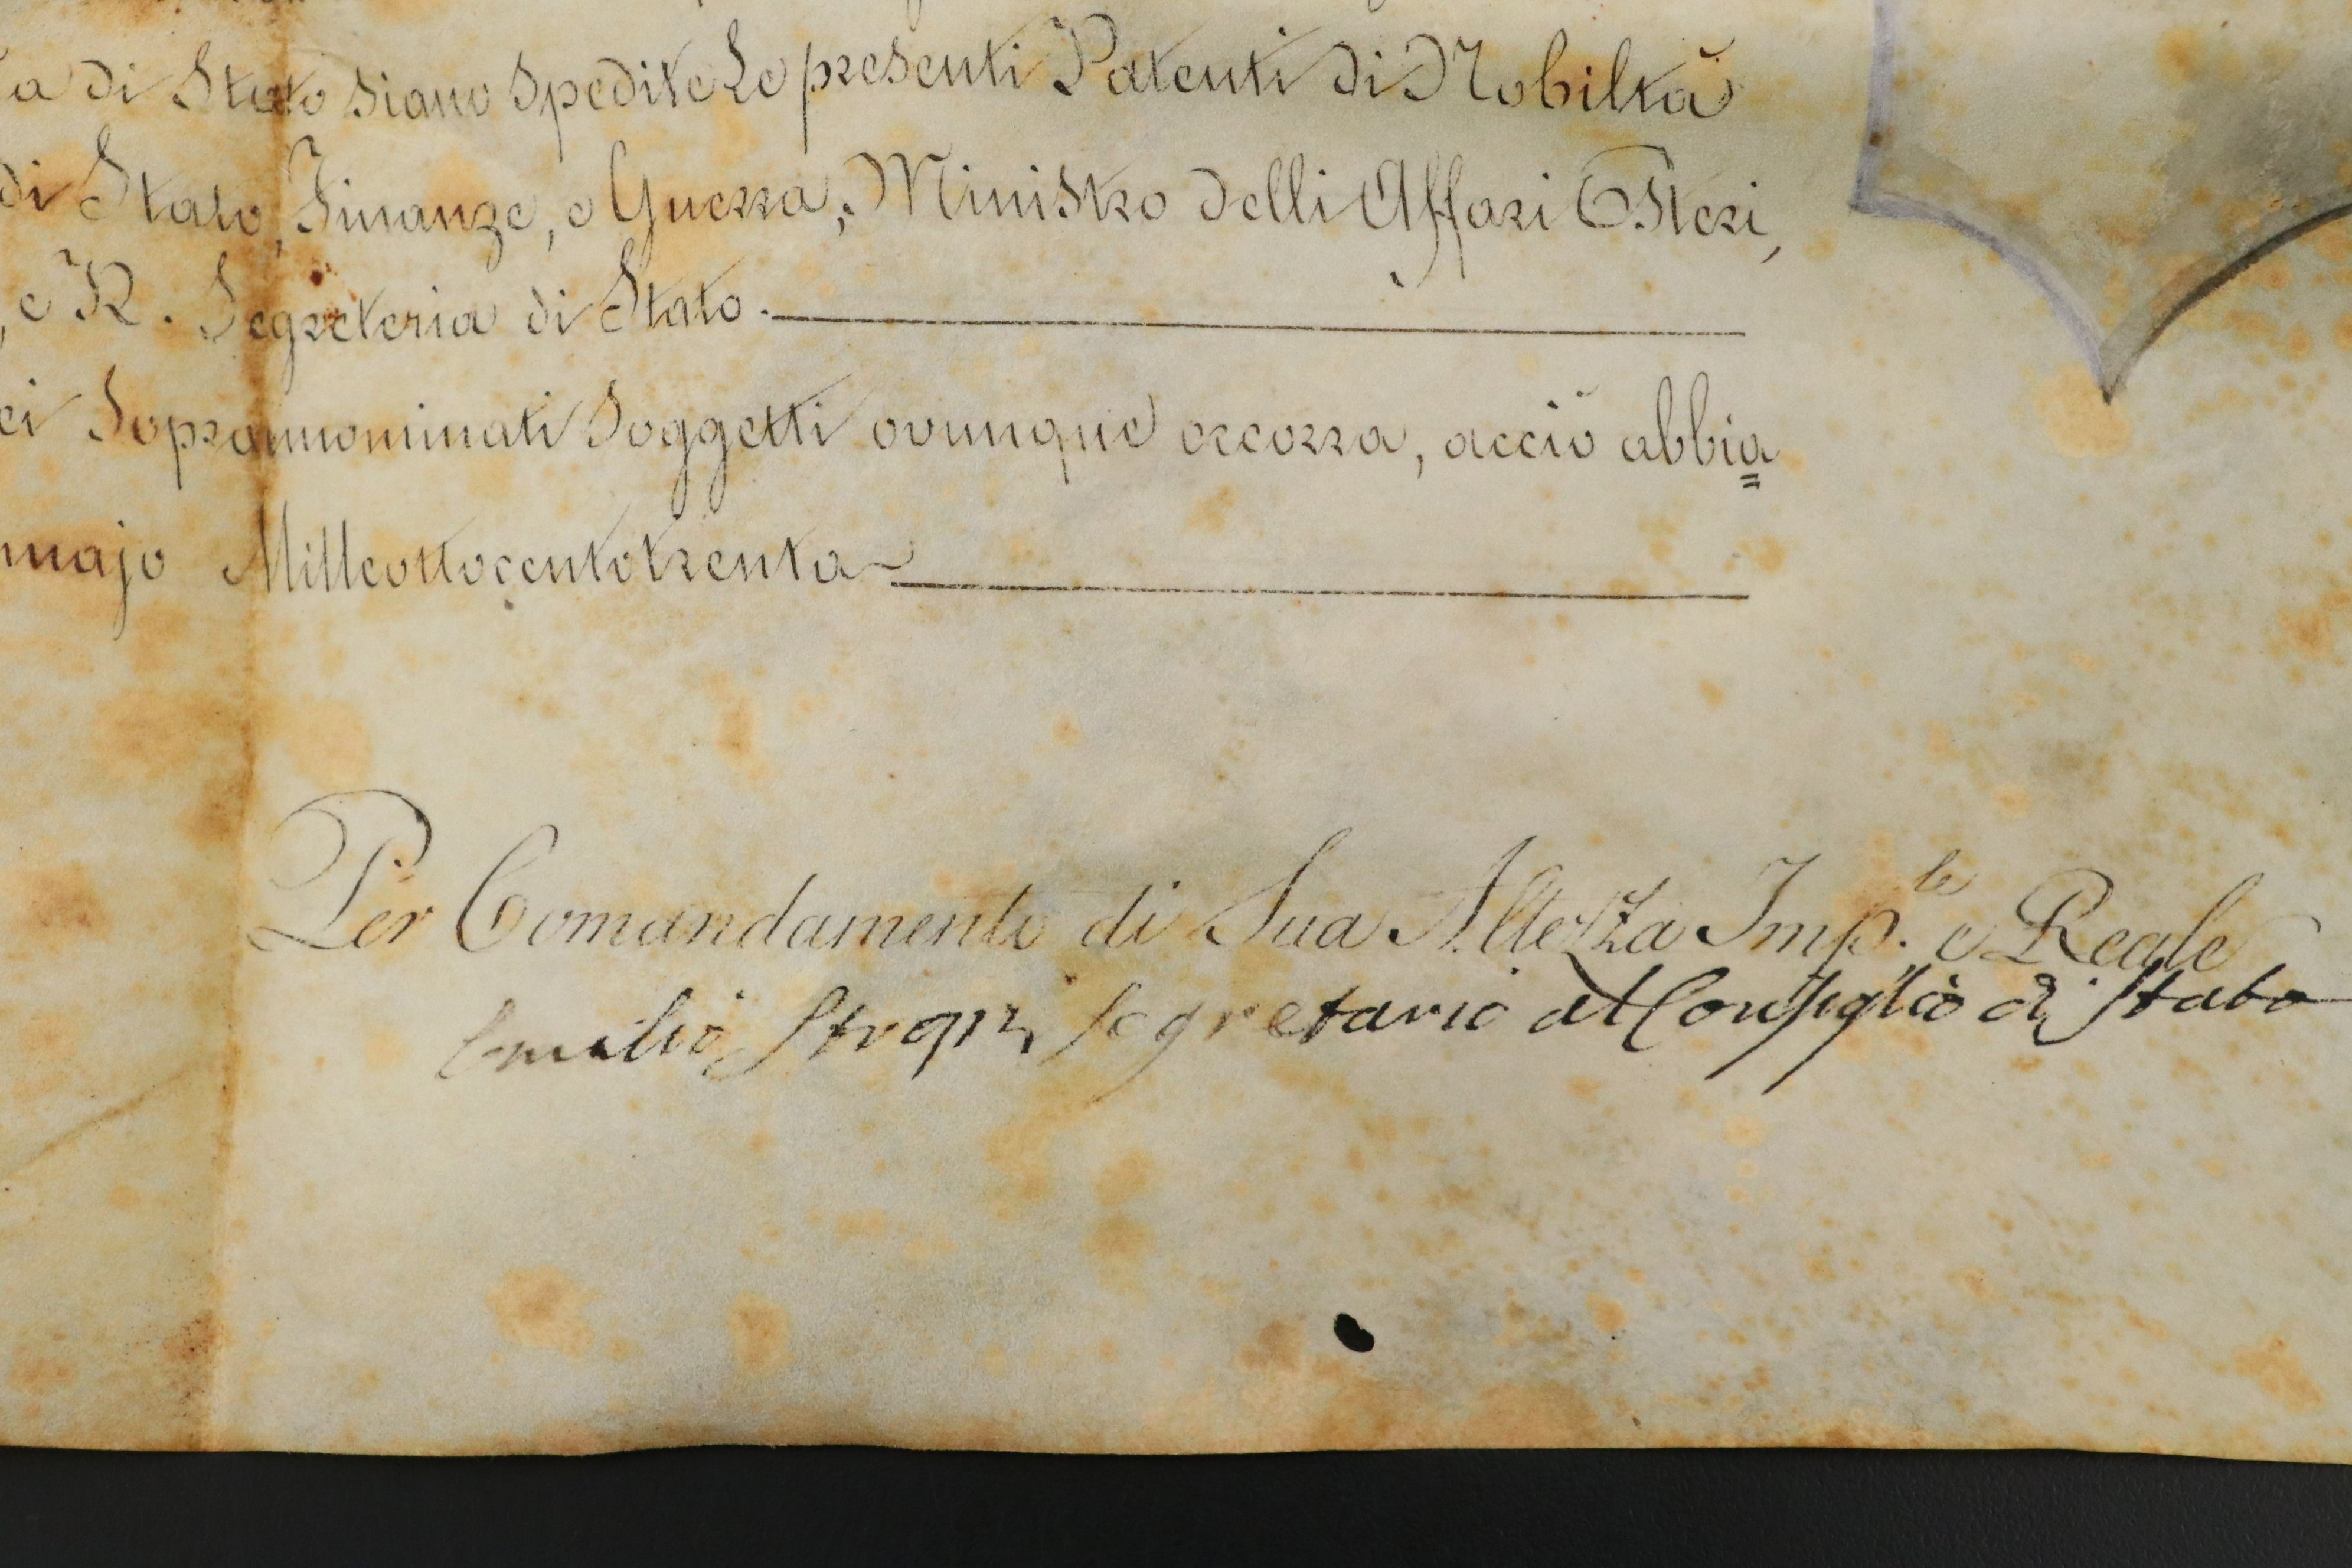 a di Stato siano Spedite Le presenti Patenti di Nobiltà
di Stato, Finanze, e Guerra; Ministro delli Affari Esteri,
, e R. Segreteria di Stato.
ei Soprannominati Soggetti ovunque occorra, acciò abbia
majo Milleottocentotrenta
Per Comandamento di Sua Altezza Imp.le e Reale
Emilio Strozzi Segretario al Consiglio di Stato